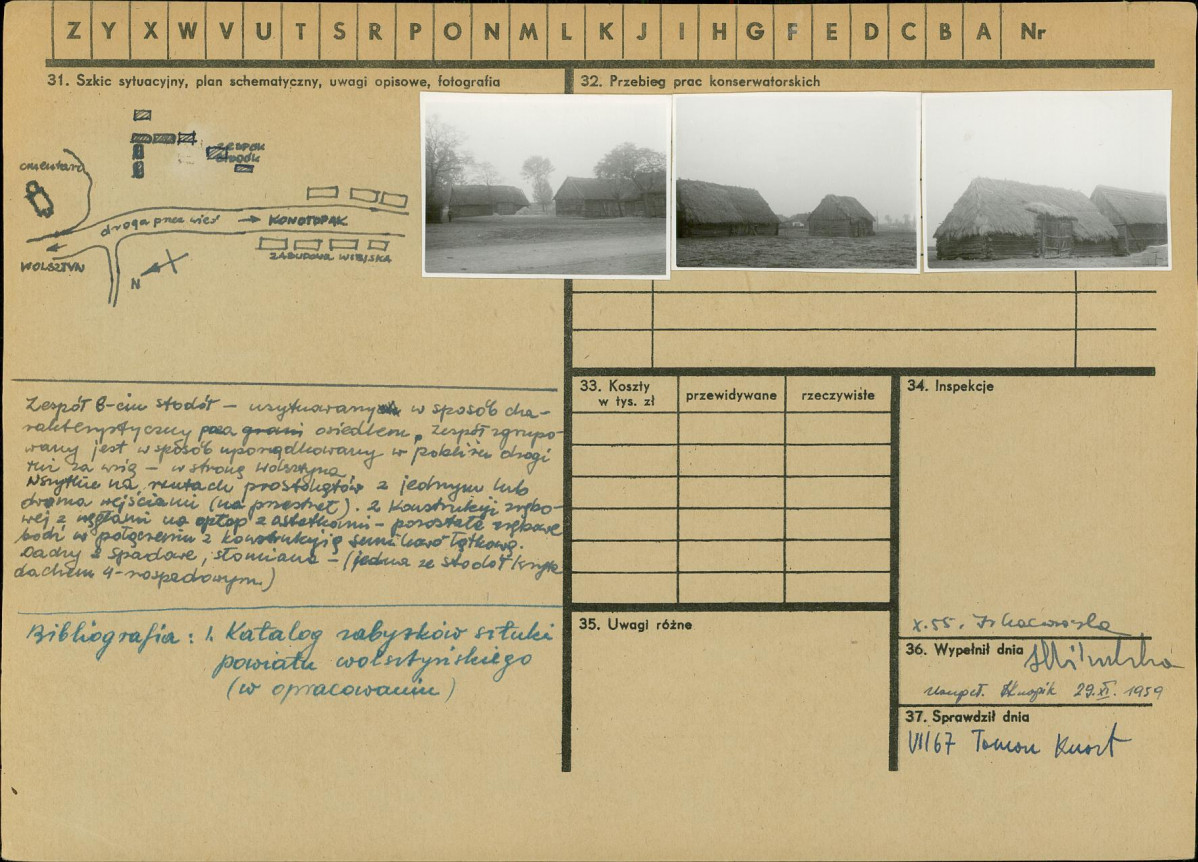 Z Y X W V U T S R P O N M L K J I H G F E D C B A Nr
31. Szkic sytuacyjny, plan schematyczny, uwagi opisowe, fotografia
32. Przebieg prac konserwatorskich
cmentarz
ZESPÓŁ
STODÓŁ
droga przez wieś
KONOTOPAK
WOLSZTYN
ZABUDOWA WIEJSKA
N
Zespół 8-ciu stodół – usytuowany w sposób cha-
rakterystyczny poza osiedlem. Zespół zgrupo-
wany jest w sposób uporządkowany w pobliżu drogi
tuż za wsią – w stronę Wolsztyna.
Wszystkie na rzutach prostokątów z jednym lub
dwoma wejściami (na przestrzał). 2 Konstrukcji zrębo-
wej z węgłami na obłap z ostatkami – pozostałe zrębowe
bądź w połączeniu z konstrukcją sumikowo łątkową.
Dachy 2 spadowe, słomiane – (jedna ze stodół kryta
dachem 4-ro spadowym.)
Bibliografia : 1. Katalog zabytków sztuki
powiatu wolsztyńskiego
(w opracowaniu)
33. Koszty
w tys. zł
przewidywane
rzeczywiste
34. Inspekcje
35. Uwagi różne
X.55.
36. Wypełnił dnia
29.XI. 1959
37. Sprawdził dnia
VII 67